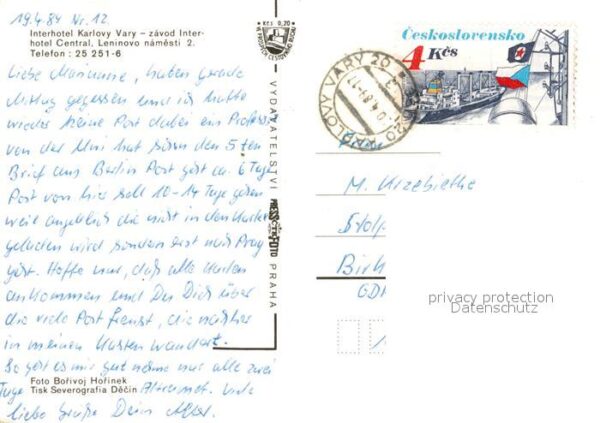 19.4.84 Nr. 12.
Interhotel Karlovy Vary – závod Inter-
hotel Central, Leninovo náměstí 2.
Telefon: 25 251-6
Liebe Marianne, haben gerade
Mittag gegessen und ich hatte
wieder keine Post dabei ein Professor
von der Uni hat schon den 5 ten
Brief aus Berlin Post geht ca. 6 Tage
Post von hier soll 10-14 Tage gehen
weil angeblich die nicht in den Kasten
geladen wird sondern erst nach Prag
geht. Hoffe nur, daß alle Karten
ankommen und Du Dich über
die viele Post freust, die nachher
in meinen Kasten wandert.
So geht es mir gut nehme nur alle zwei
Tage
Foto Bořivoj Hořínek
Tisk Severografia Děčín
viele
liebe Grüße Dein
Kčs 0,20
VYDAVATELSTVÍ
PRESSFOTO
PRAHA
Československo
4 Kčs
KARLOVY VARY 20
M. Krzebietke
Stolp
Birk
GDR
privacy protection
Datenschutz